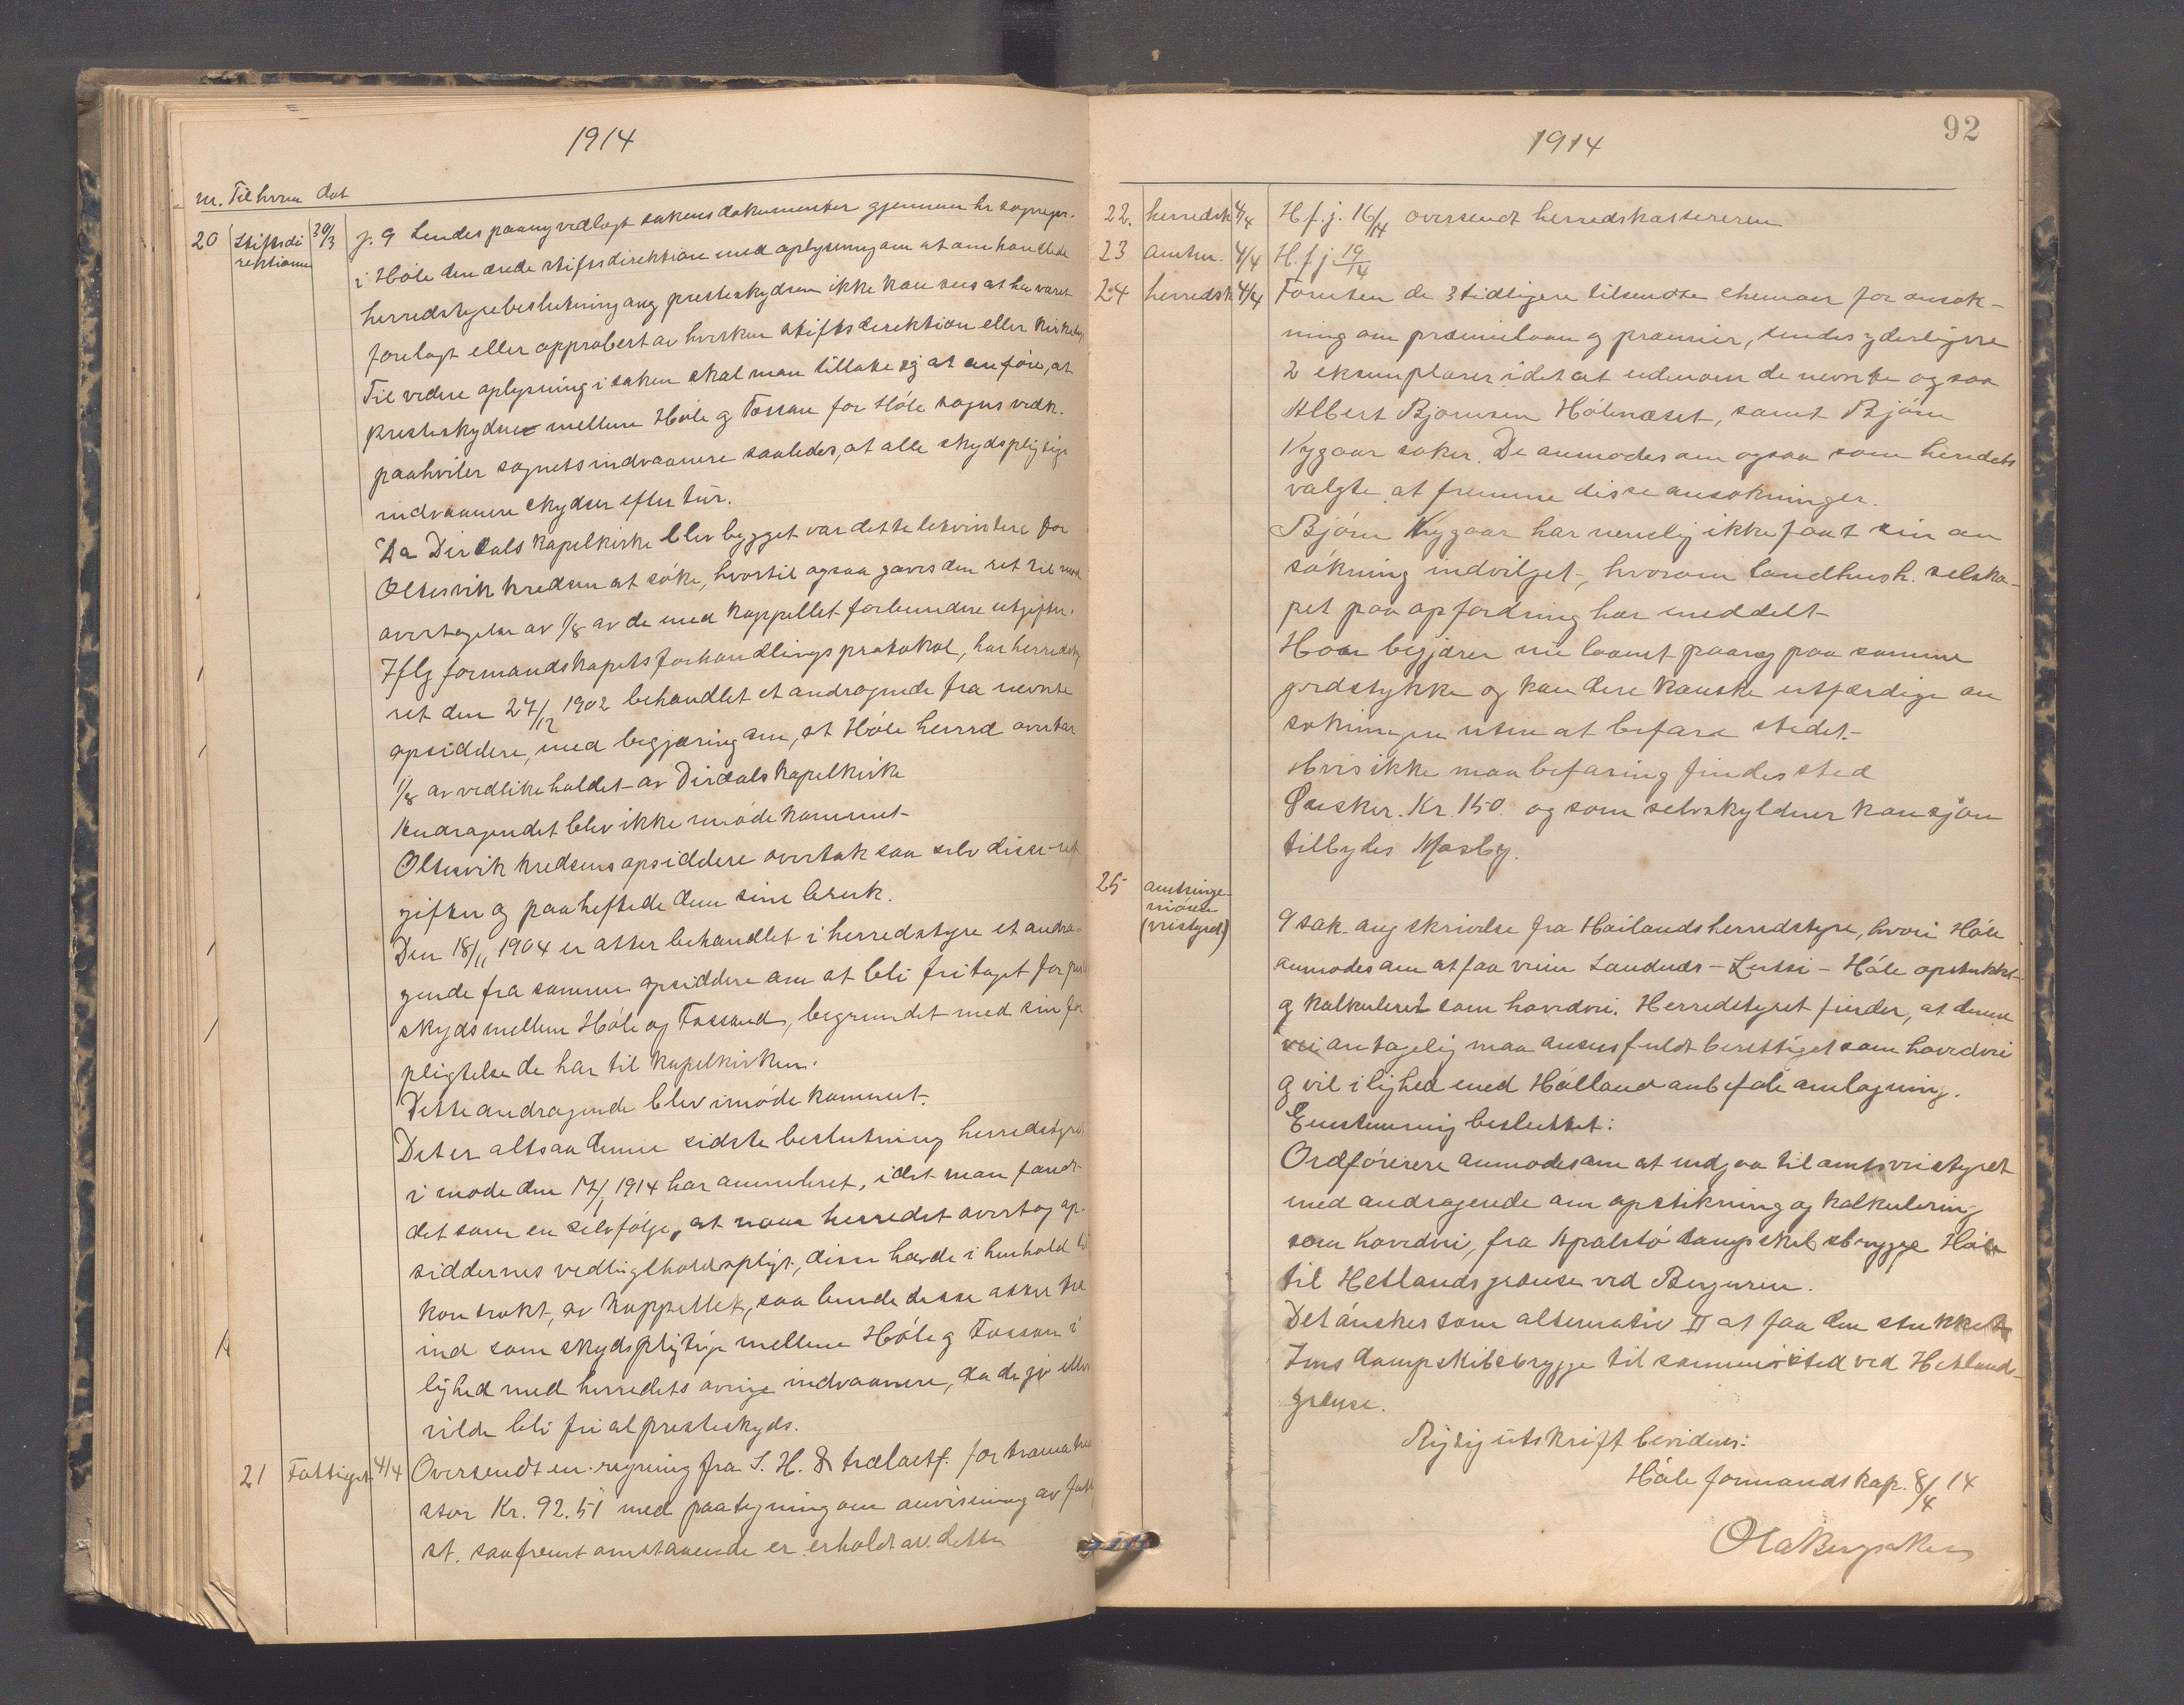 1914
nr. Til hvem dat
20 Stiftsdi rektionen 30/3 j. 9 Sendes paany vedlagt sakens dokumenter gjennem hr sognepr.
i Höle den ærede stiftsdirektion med oplysning om at omhandlede
herredstyrebeslutning ang presteskydsen ikke kan sees at ha været
forelagt eller approbert av hverken stiftsdirektion eller kirkedep.
Til videre oplysning i saken skal man tillate sig at anföre, at
presteskydsen mellem Höle og Fossan for Höle sogns vedk.
paahviler sognets indvaanere saaledes, at alle skydspligtige
indvaanere skydser efter tur.
Da Dirdals kapelkirke blev bygget var dette bekvemtere for
Oltesvik kredsen at söke, hvortil ogsaa gaves den ret til mot
overtagelse av 1/8 av de med kappellet forbundne utgifter.
Iflg formandskapets forhandlingsprotokol, har herredsty
ret den 27/12 1902 behandlet et andragende fra nevnte
opsiddere, med begjæring om, at Höle herred overtar
1/8 av vedlikeholdet av Dirdals kapelkirke
Andragendet blev ikke imöde kommet
Oltesvik kredsens opsiddere overtok saa selv disse ut
gifter og paaheftede dem sine bruk.
Den 18/11 1904 er atter behandlet i herredstyre et andra-
gende fra samme opsiddere om at bli fritaget for prest
skyds mellem Höle og Fossand, begrundet med sin for
pligtelse de har til kapelkirken.
Dette andragende blev imöde kommet.
Det er altsaa denne sidste beslutning herredstyret
i möde den 17/1 1914 har annuleret, idet man fandt
det som en selvfölge, at naar herredet overtog op-
siddernes vedligeholdspligt, disse havde i henhold til
kontrakt, av kappellet, saa burde disse atter træ
ind som skydspligtige mellem Höle og Fossan i
lighed med herredets övrige indvaanere, da de jo ellers
vilde bli fri al presteskyds.
21 Fattigst. 4/4 Oversendt en regning fra S. H. & trælastf. for
stor Kr. 92.51 med paategning om anvisning av fatt
st. saafremt omstaaende er erholdt av dette
1914
92
22. herredsk 4/4 H.f.j. 16/14 oversendt herredskassereren
23 amtm. 4/4 H.f.j 19/14
24 herredsk 4/4 Foruten de 3 tidligere tilsendte chemaer for ansök-
ning om præmielaan og præmier, sendes yderligere
2 eksemplarer idet at udenom de nevnte og saa
Albert Bjornsen Hölenæset, samt Björn
Kygaar söker. De anmodes om ogsaa som herredets
valgte at fremme disse ansökninger.
Björn Kygaar har nemlig ikke faat sin an
sökning indvilget, hvorom landhush. selska-
pet paa opfordring har meddelt
Han begjærer nu laanet paany paa samme
jordstykke og kan dere kanske utfærdige an
sökningen uten at befare stedet.-
Hvis ikke maa befaring finde sted
Önsker. Kr. 150. og som selvskyldner kausjon
tilbydes Mosby.
25 amtsinge- niören (veistyret)
9 sak. ang skrivelse fra Höilands herredstyre, hvori Höle
anmodes om at faa veien Sandnes - Lutsi - Höle opstukket
og kalkuleret som hovedvei. Herredstyret finder, at denne
vei antagelig maa ansees fuldt berettiget som hovedvei
og vil i lighed med Höiland anbefale anlægning.
Enstemmig besluttet:
Ordföreren anmodes om at indgaa til amtsveistyret
med andragende om opstikning og kalkulering
som hovedvei, fra Apalstö dampskibsbrygge Höle
til Hetlands grænse ved Bergeren.
Det önskes som alternativ II at faa den stukket
Ims dampskibsbrygge til samme sted ved Hetlands-
grænse.
Rigtig utskrift bevidnes:
Höle formandskap. 8/4 14
Ola Bergsaker